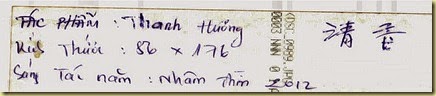 TÁC PHẨM : Thanh Hương 清香
Kích Thước : 86 x 176
Sáng Tác năm : Nhâm Thìn 2012